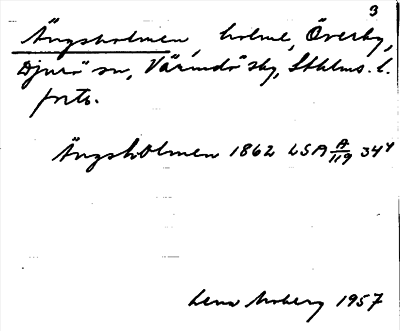 3
Ängsholmen, holme, Överby,
Djurö sn, Värmdö skg, Sthlms. l.
forts.
Ängsholmen 1862 LSA A/119 34⁴
Lena Moberg 1957